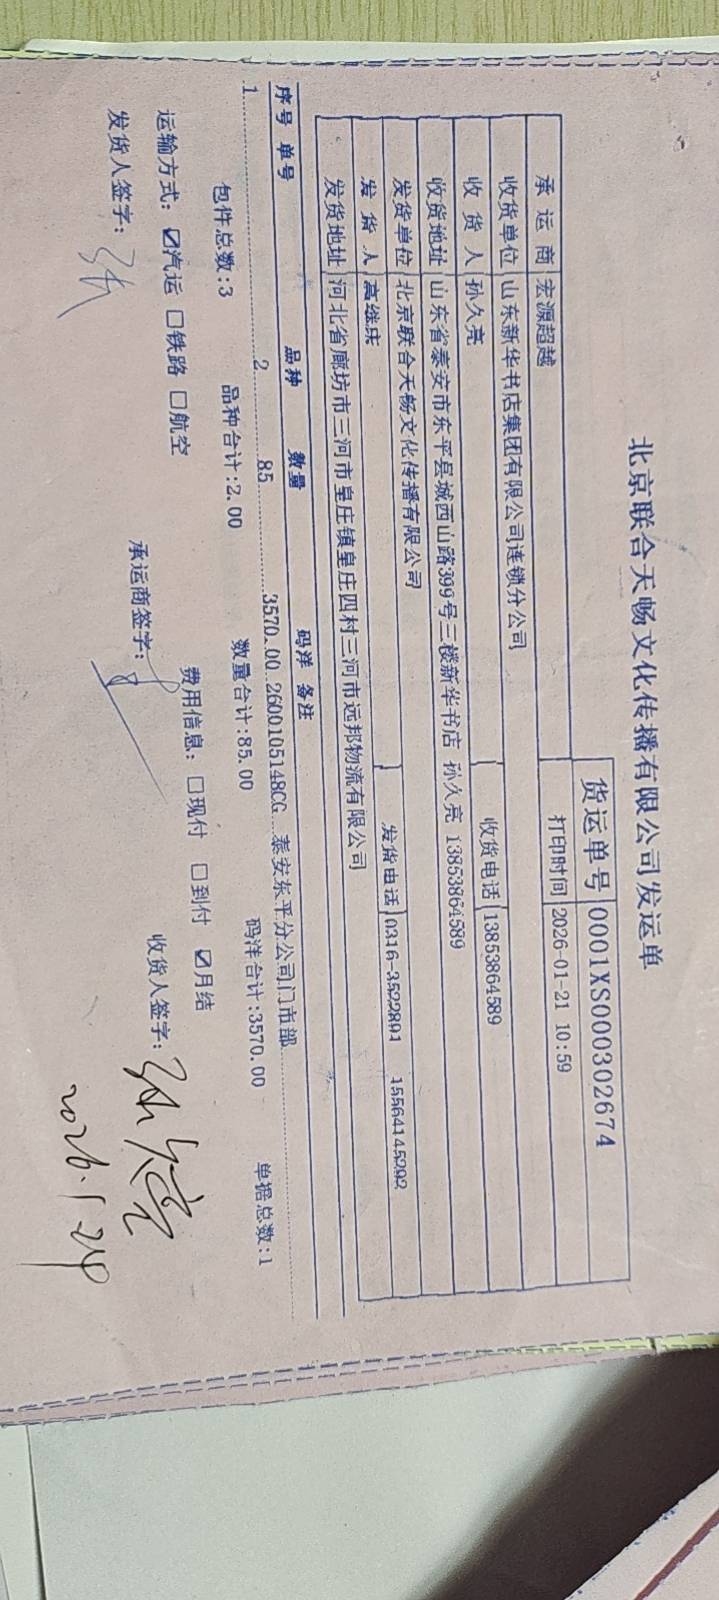 北京联合天畅文化传播有限公司发运单
货运单号 0001XS000302674
承运商 宏源超越 打印时间 2026-01-21 10:59
收货单位 山东新华书店集团有限公司连锁分公司
收货人 孙久亮 收货电话 13853864589
收货地址 山东省泰安市东平县城西山路399号三楼新华书店 孙久亮 13853864589
发货单位 北京联合天畅文化传播有限公司
发货人 高继庆 发货电话 0316-3522891 15564145292
发货地址 河北省廊坊市三河市皇庄镇皇庄四村三河市远邦物流有限公司
序号 单号 品种 数量 码洋 备注
1 2 85 3570.00 2600105148CG 泰安东平分公司门市部
包件总数:3 品种合计:2.00 数量合计:85.00 码洋合计:3570.00 单据总数:1
运输方式: ☑汽运 □铁路 □航空 费用信息: □现付 □到付 ☑月结
发货人签字: 承运商签字: 收货人签字:
2026.1.24